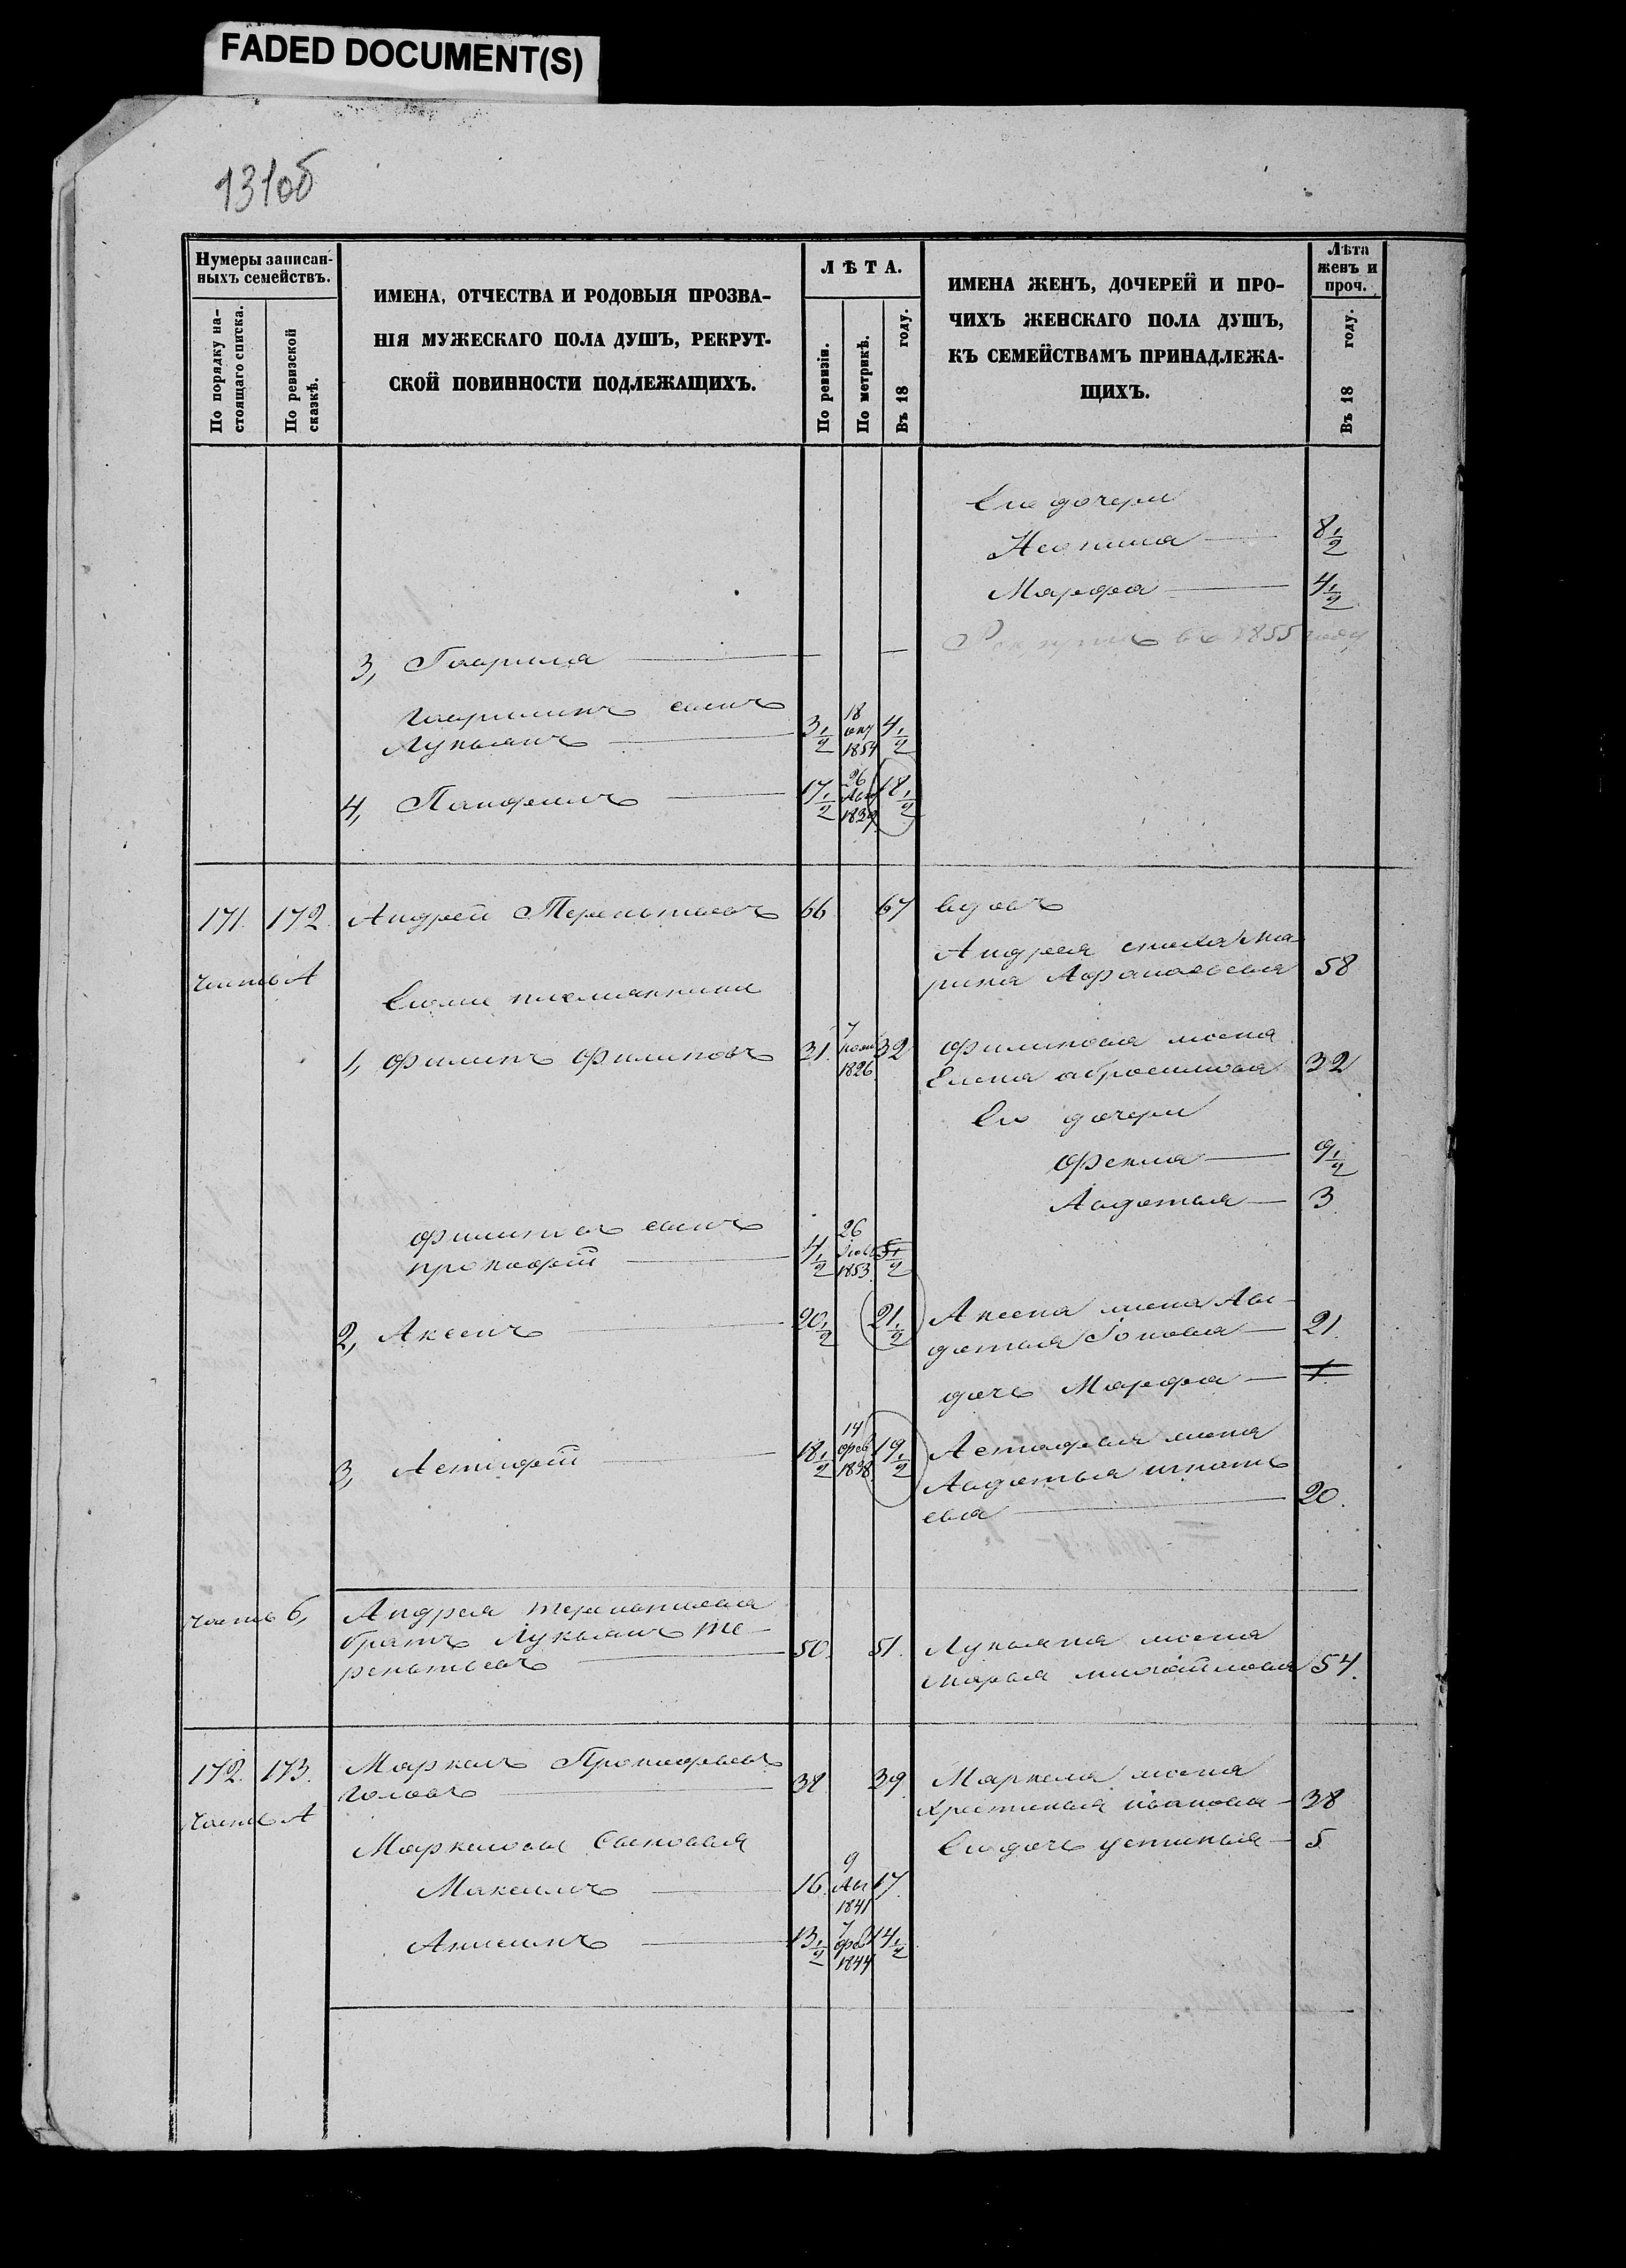 FADED DOCUMENT(S)
131об
Нумеры записан-
ныхъ семействъ.
По порядку на-
стоящаго списка.
По ревизской
сказкѣ.
ИМЕНА, ОТЧЕСТВА И РОДОВЫЯ ПРОЗВА-
НІЯ МУЖЕСКАГО ПОЛА ДУШЪ, РЕКРУТ-
СКОЙ ПОВИННОСТИ ПОДЛЕЖАЩИХЪ.
ЛѢТА.
По ревизіи.
По метрикѣ.
Въ 18 году.
ИМЕНА ЖЕНЪ, ДОЧЕРЕЙ И ПРО-
ЧИХЪ ЖЕНСКАГО ПОЛА ДУШЪ,
КЪ СЕМЕЙСТВАМЪ ПРИНАДЛЕЖА-
ЩИХЪ.
Лѣта
женъ и
проч.
Въ 18 году.
Его дочери
8 1/2
Марфа — 4 1/2
3, Гаврила — — Рекрутъ въ 1855 году
Гаврилинъ сынъ
Лукьянъ — 3 1/2 18 1854 4 1/2
4, Панфилъ — 17 1/2 26 1839 18 1/2
171. 172. Андрей Терентьевъ 66 67 вдовъ
Андрея сноха Ма-
рина Афанасьева 58
часть А
Его же племянники
1, Филипъ Филиповъ 31. 7 ноя 1826 32 Филипова жена
Елена абросимова 32
Его дочери
Фекла — 9 1/2
Авдотья — 3
Филипов сынъ
прокофій — 4 1/2 26 1853. 5 1/2
2, Аксенъ — 20 1/2 21 1/2 Аксена жена Ав-
дотья Іонова — 21.
дочь Марфа — 1
3, Астафій — 18 1/2 14 фев 1838 19 1/2 Астафья жена
Авдотья игнать
ева — 20.
часть б, Андрея терентьева
братъ Лукьянъ Те-
рентьевъ — 50. 51. Лукьяна жена
марья михайлова 54.
172. 173. Маркелъ Прокофьевъ
Головъ — 38 39. Маркела жена
Хрестинья иванова — 38
часть А
Маркеловы Сыновья Его дочь устинья — 5
Максимъ — 16. 9 Ав 1841 17.
Анисимъ — 13 1/2 7 фев 1844 14 1/2